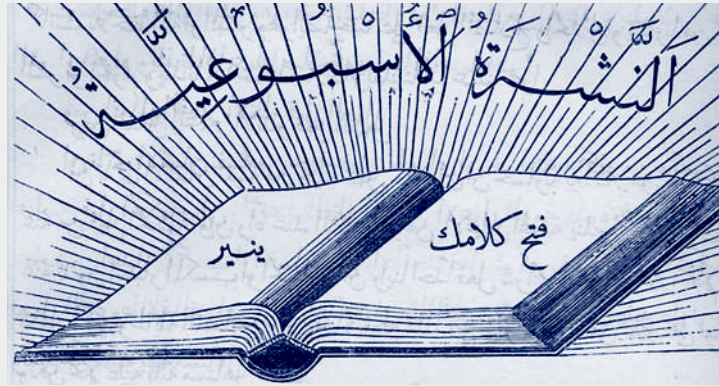 اَلنَّشْرَةُ اَلْأُسْبُوعِيَّةُ
فتح كلامك ينير